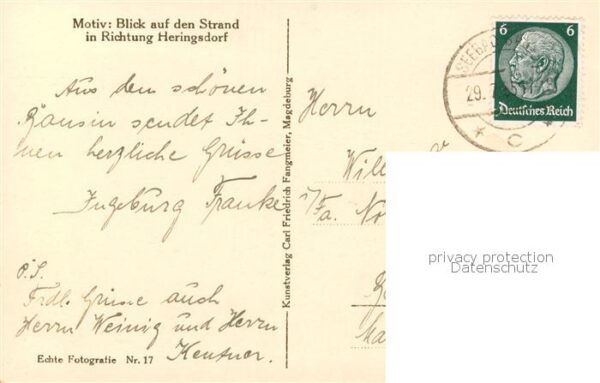 Motiv: Blick auf den Strand
in Richtung Heringsdorf
Aus dem schönen
Bansin sendet Ih-
nen herzliche Grüsse
Ingeburg Franke
P.S.
Frdl. Grüsse auch
Herrn Weinig und Herrn
Kentner.
Echte Fotografie Nr. 17
Kunstverlag Carl Friedrich Fangmeier, Magdeburg
6 6
Deutsches Reich
29.
C
Herrn
Will
i/Fa. No
privacy protection
Datenschutz